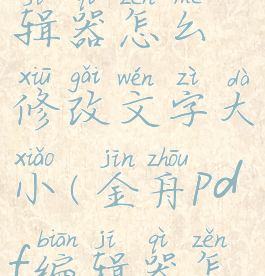 辑器怎么
xiū gǎi wén zì dà
修改文字大
xiǎo jīn zhōu
小(金舟pd
biān jí qì zěn
f编辑器怎